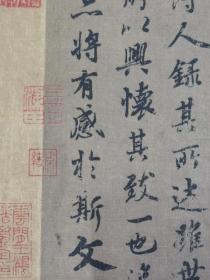 時人錄其所述雖世
所以興懷其致一也後
亦將有感於斯文